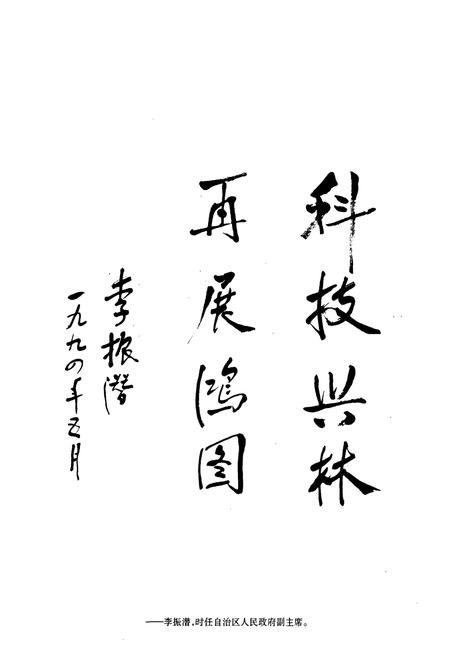 科技兴林
再展鸿图
李振潜
一九九四年五月
——李振潜，时任自治区人民政府副主席。